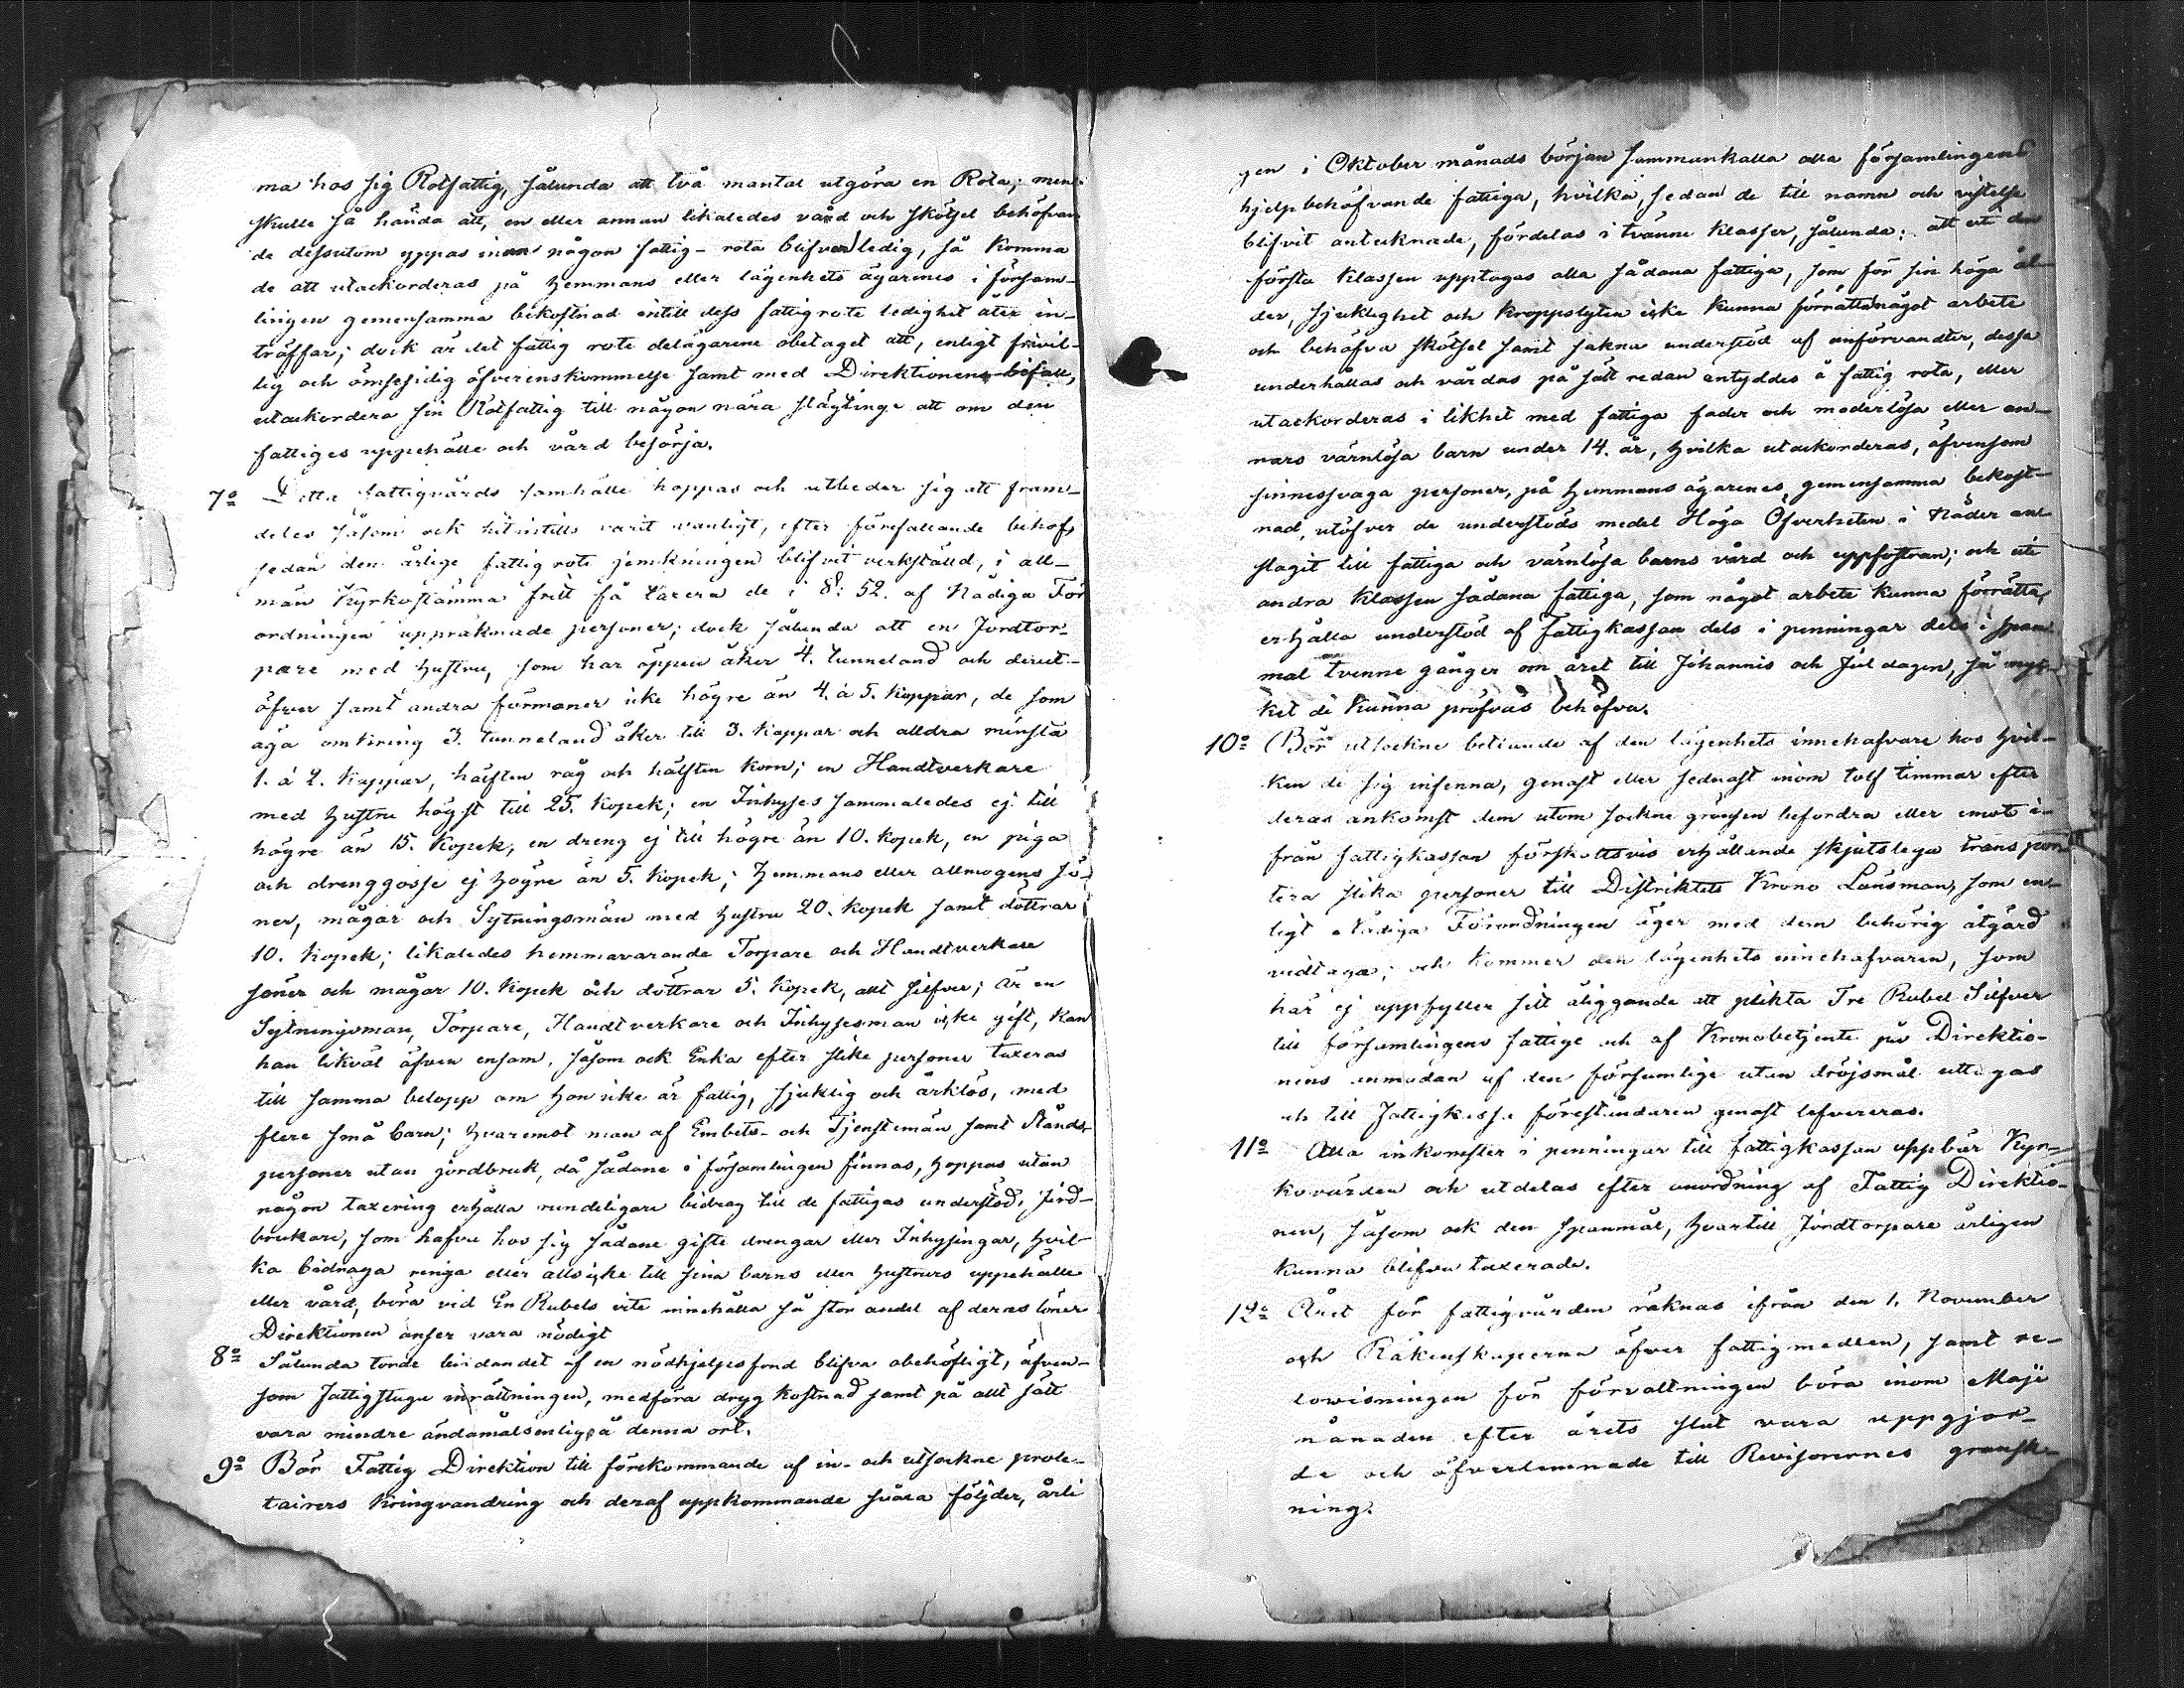 ma hos sig Rotfattig, sålunda att två mantal utgöra en Rota; men
skulle så hända att, en eller annan likaledes vård och skötsel behöfvan
de dessutom yppas inan någon fattig-rota blifver ledig, så komma
de att utackorderas på hemmans eller lägenhets ägarines i försam-
lingen gemensamma bekostnad intill dess fattigrote ledighet åter in-
träffar; dock är det fattig rote delägarene obetaget att, enligt frivil-
lig och ömsesidig öfverenskommelse samt med Direktionens bifall,
utackordera sin Rotfattig till någon nära slägtinge att om den
fattiges uppehälle och vård besörja.
7o Detta fattigvårds samhälle hoppas och utbeder sig att fram-
deles såsom ock hitintills varit vanligt, efter förefallande behof,
sedan den årlige fattig rote jemkningen blifvit verkställd, i all-
män Kyrkostämma fritt få taxera de i §: 52. af Nådiga För
ordningen uppräknade personer; dock sålunda att en Jordtor-
pare med hustru, som har öppen åker 4. tunneland och derut-
öfver samt andra förmoner icke högre än 4. à 5. kappar, de som
äga omkring 3. tunneland åker till 3. kappar och alldra minsta
1. à 2. kappar, hälften råg och hälften korn; en Handtverkare
med hustru högst till 25. kopek; en Inhyses sammaledes ej till
högre än 15. kopek, en dreng ej till högre än 10. kopek, en piga
och drenggosse ej högre än 5. kopek; hemmans eller allmogens sö-
ner, mågar och Sytningsmän med hustru 20. kopek samt döttrar
10. kopek; likaledes hemmavarande Torpare och Handtverkare
söner och mågar 10. kopek och döttrar 5. kopek, allt silfver; Är en
Sytningsman, Torpare, Handtverkare och Inhysesman icke gift, kan
han likväl äfven ensam, såsom ock Enka efter slike personer taxeras
till samma belopp om hon icke är fattig, sjuklig och ärklös, med
flere små barn; hvaremot man af Embets- och Tjenstemän samt Stånds-
personer utan jordbruk, då sådane i församlingen finnas, hoppas utan
någon taxering erhålla rundeligare bidrag till de fattigas understöd, jord-
brukare, som hafva hos sig sådane gifte drengar eller Inhysingar, hvil-
ka bidraga ringa eller allsicke till sina barns eller hustrurs uppehälle
eller vård, böra vid En Rubels vite innehålla så stor andel af deras löner
Direktionen anser vara nödigt
8o Sålunda torde bildandet af en nödhjelpsfond blifva obehöfligt, äfven-
som Fattigstugu inrättningen, medföra dryg kostnad samt på allt sätt
vara mindre ändamålsenlig på denna ort.
9o Bör Fattig Direktion till förekommande af in- och utsockne prole-
tairers kringvandring och deraf uppkommande svåra följder, årli
gen i Oktober månads början sammankalla alla församlingens
hjelpbehöfvande fattiga, hvilka, sedan de till namn och vistelse
blifvit antecknade, fördelas i tvänne klasser, sålunda: att uti den
första Klassen upptagas alla sådana fattiga, som för sin höga ål-
der, sjuklighet och kroppslyten icke kunna förrätta något arbete
och behöfva skötsel samt sakna understöd af anförvandter, dessa
underhållas och vårdas på sätt redan antyddes å fattig rota, eller
utackorderas i likhet med fattiga fader och moderlösa eller an-
nars värnlösa barn under 14. år, hvilka utackorderas, äfvensom
sinnessvaga personer, på hemmans ägarenes gemensamma bekost-
nad, utöfver de understöds medel Höga Öfverheten i Nåder an-
slagit till fattiga och värnlösa barns vård och uppfostran; och uti
andra Klassen sådana fattiga, som något arbete kunna förrätta,
erhålla understöd af Fattigkassan dels i penningar dels i span-
mål tvenne gånger om året till Johannis och Jul dagen, så myc-
ket de kunna pröfvas behöfva.
10o Bör utsockne betlande af den lägenhets innehafvare hos hvil-
ken de sig infinna, genast eller sednast inom tolf timmar efter
deras ankomst dem utom sockne gränsen befordra eller emot i-
från fattigkassan förskottsvis erhållande skjutslega transpor-
tera slika personer till Distriktets Krono Länsman, som en-
ligt Nådiga Förordningen äger med dem behörig åtgärd
vidtaga; och kommer den lägenhets innehafvaren, som
här ej uppfyller sitt åliggande att plikta Tre Rubel Silfver
till församlingens fattige och af Kronobetjente på Direktio-
nens anmodan af den försumlige utan dröjsmål uttagas
och till Fattigkasse föreståndaren genast lefvereras.
11o Alla inkomster i penningar till fattigkassan uppbär Kyr-
kovärden och utdelas efter anordning af Fattig Direktio-
nen, såsom ock den spanmål, hvartill Jordtorpare årligen
kunna blifva taxerade.
12o Året för fattigvården räknas ifrån den 1. November
och Räkenskaperna öfver fattigmedlen, samt re-
dovisningen för förvaltningen böra inom Maji
månaden efter årets slut vara uppgjor-
de och öfverlemnade till Revisorernes gransk-
ning.